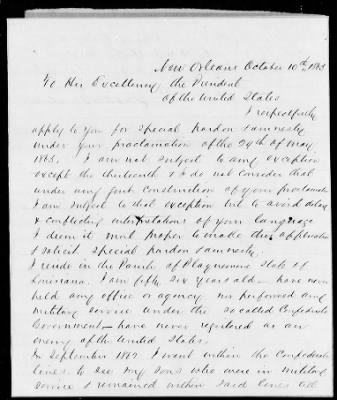 New Orleans October 10th, 1865
To His Excellency the President
of the United States
I respectfully
apply to you for special pardon & amnesty
under your proclamation of the 29th of May
1865. I am not subject to any exception
except the thirteenth & I do not consider that
under any just construction of your proclamation
I am subject to that exception but to avoid delay
& conflicting interpretations of your language
I deem it most proper to make this application
& solicit special pardon & amnesty.
I reside in the Parish of Plaquemine State of
Louisiana. I am fifty six years old - have never
held any office or agency nor performed any
military service under the so called Confederate
Government - have never registered as an
enemy of the United States.
In September 1862 I went within the Confederate
lines to see my sons who were in military
service & remained within said lines